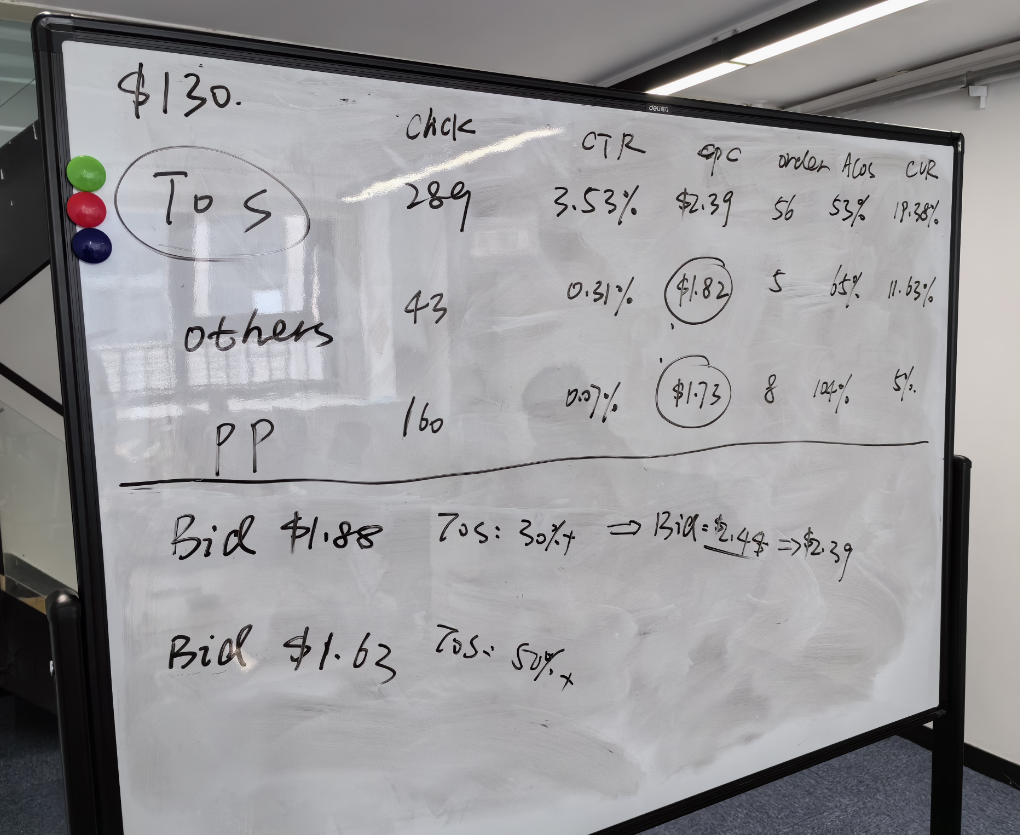 deli
$130.
Click CTR cpc order Acos CVR
Tos 289 3.53% $2.39 56 53% 19.38%
others 43 0.31% $1.82 5 65% 11.63%
PP 160 0.07% $1.73 8 104% 5%
Bid $1.88 Tos: 30%+ ⇒ Bid = $2.44 ⇒ $2.39
Bid $1.63 Tos: 50%+